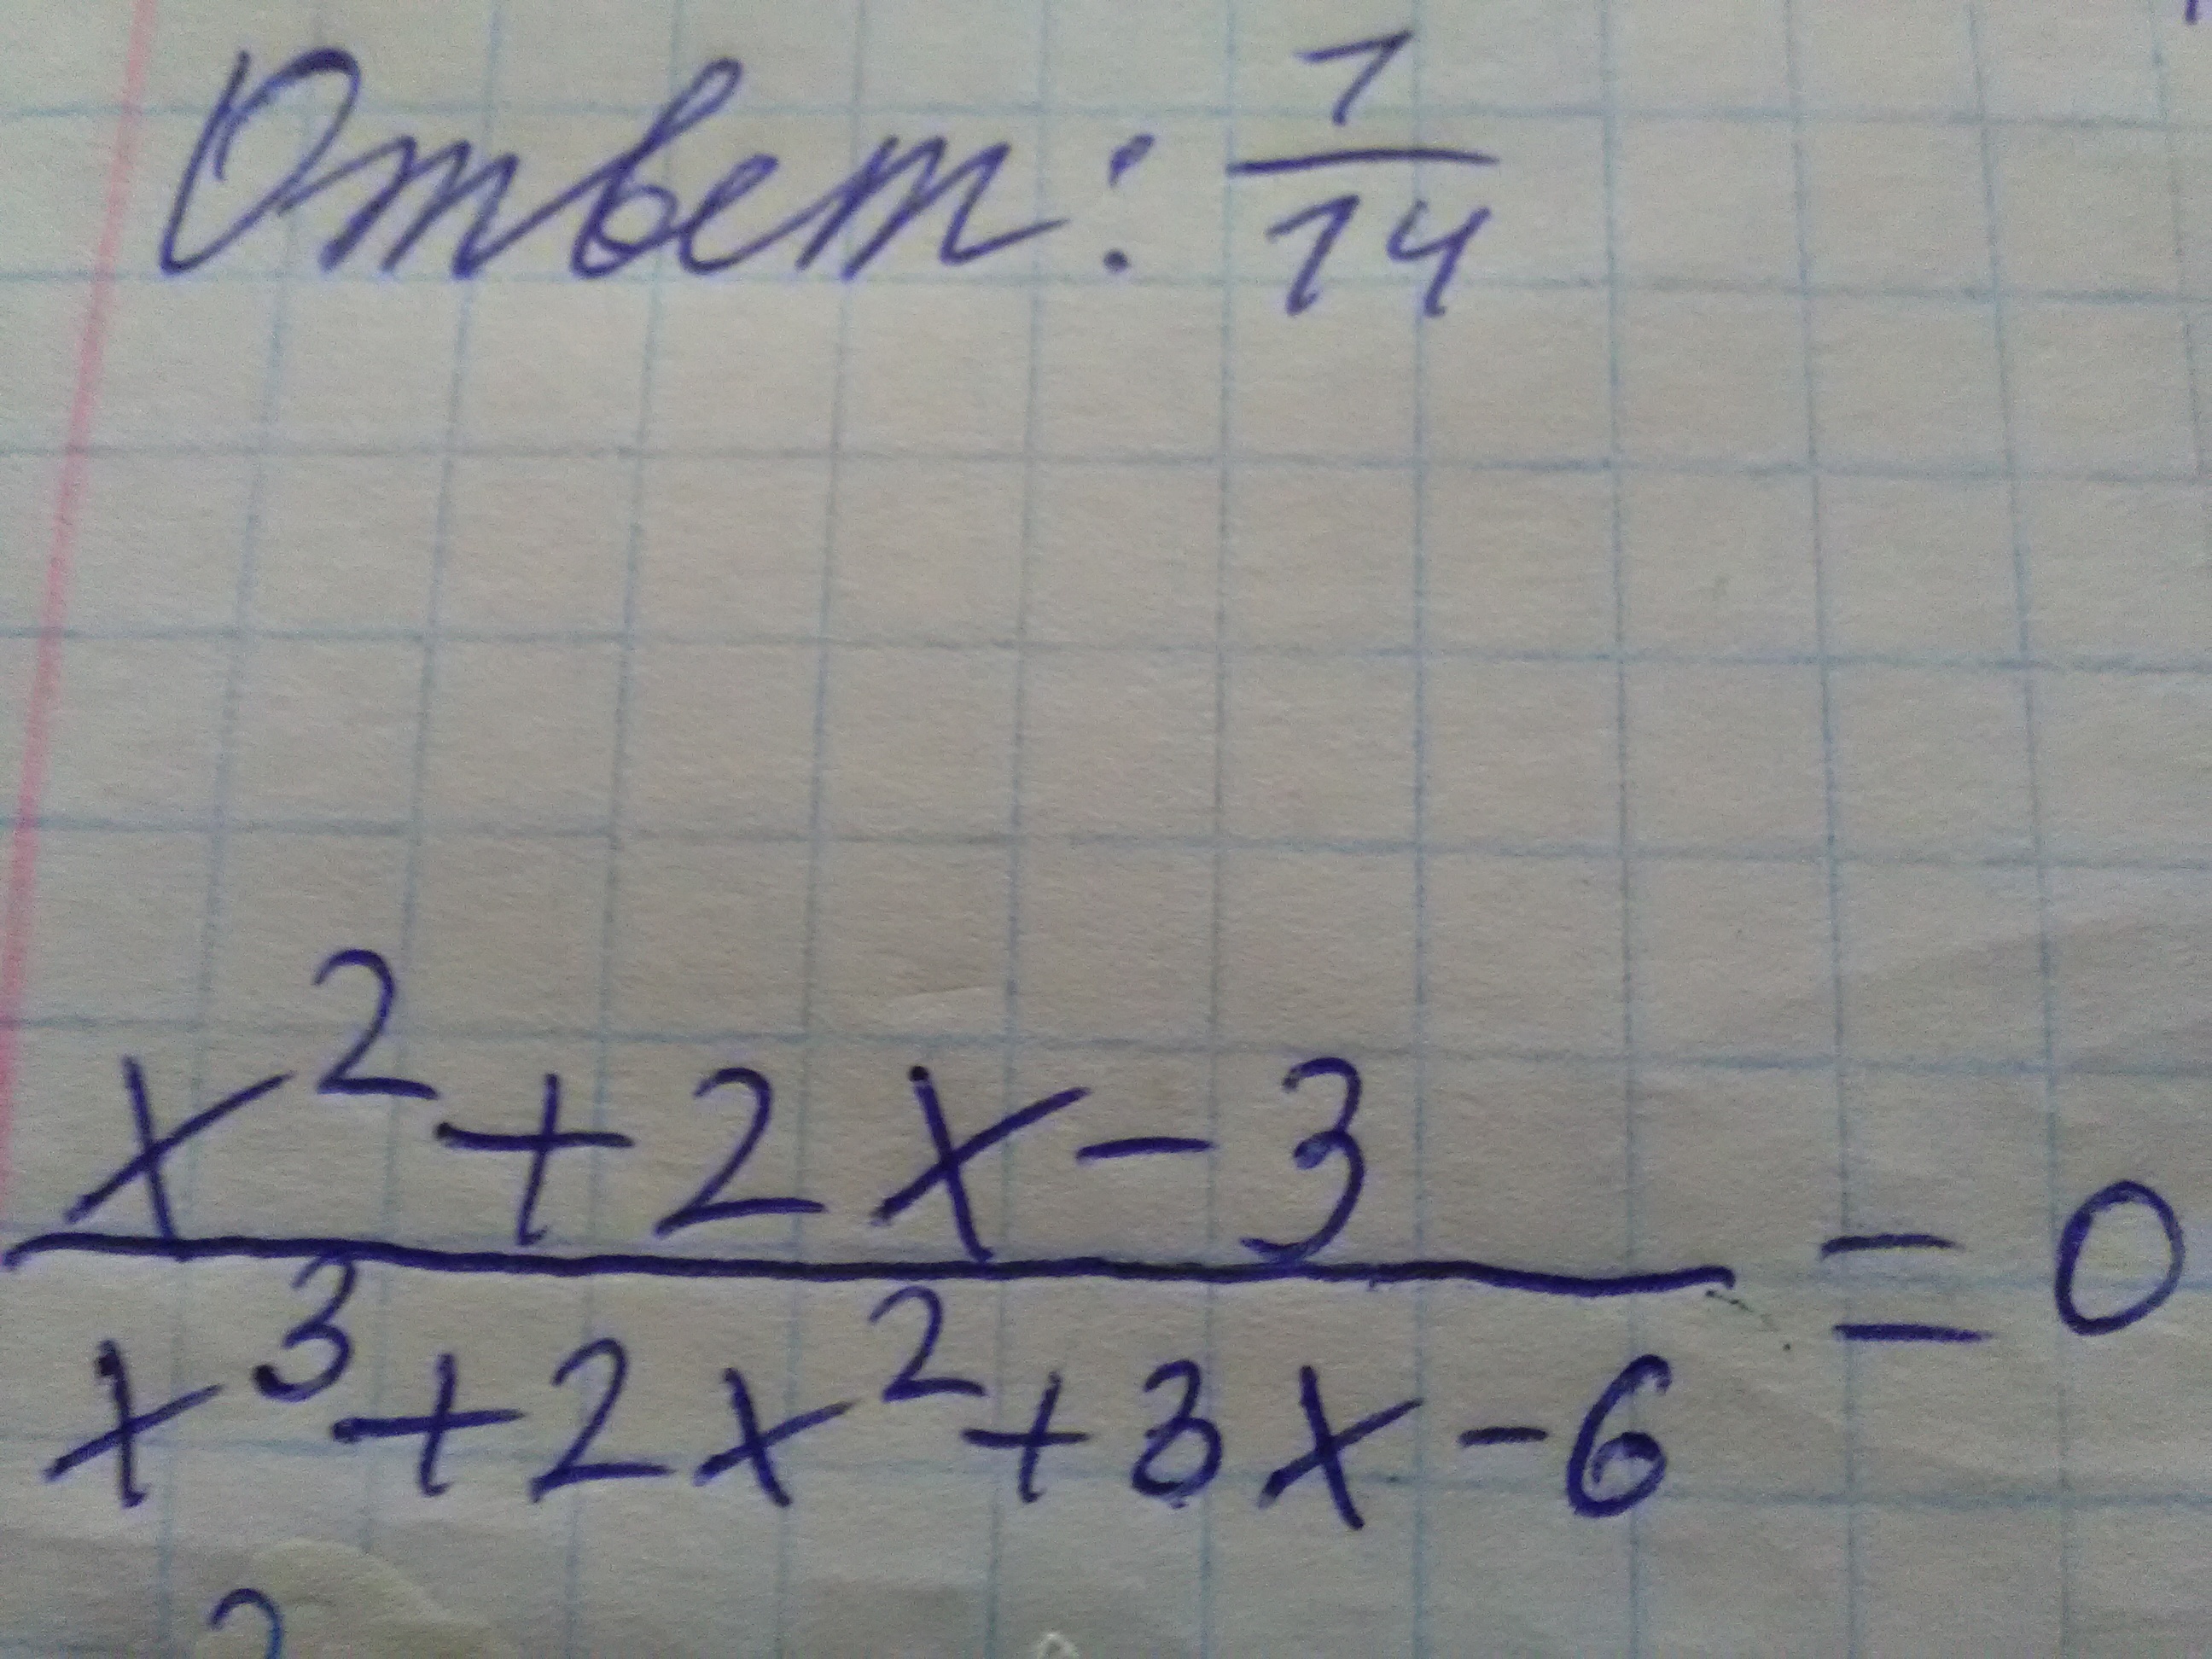 Ответ: 1/14
x²+2x-3
/ x³+2x²+3x-6 = 0
2